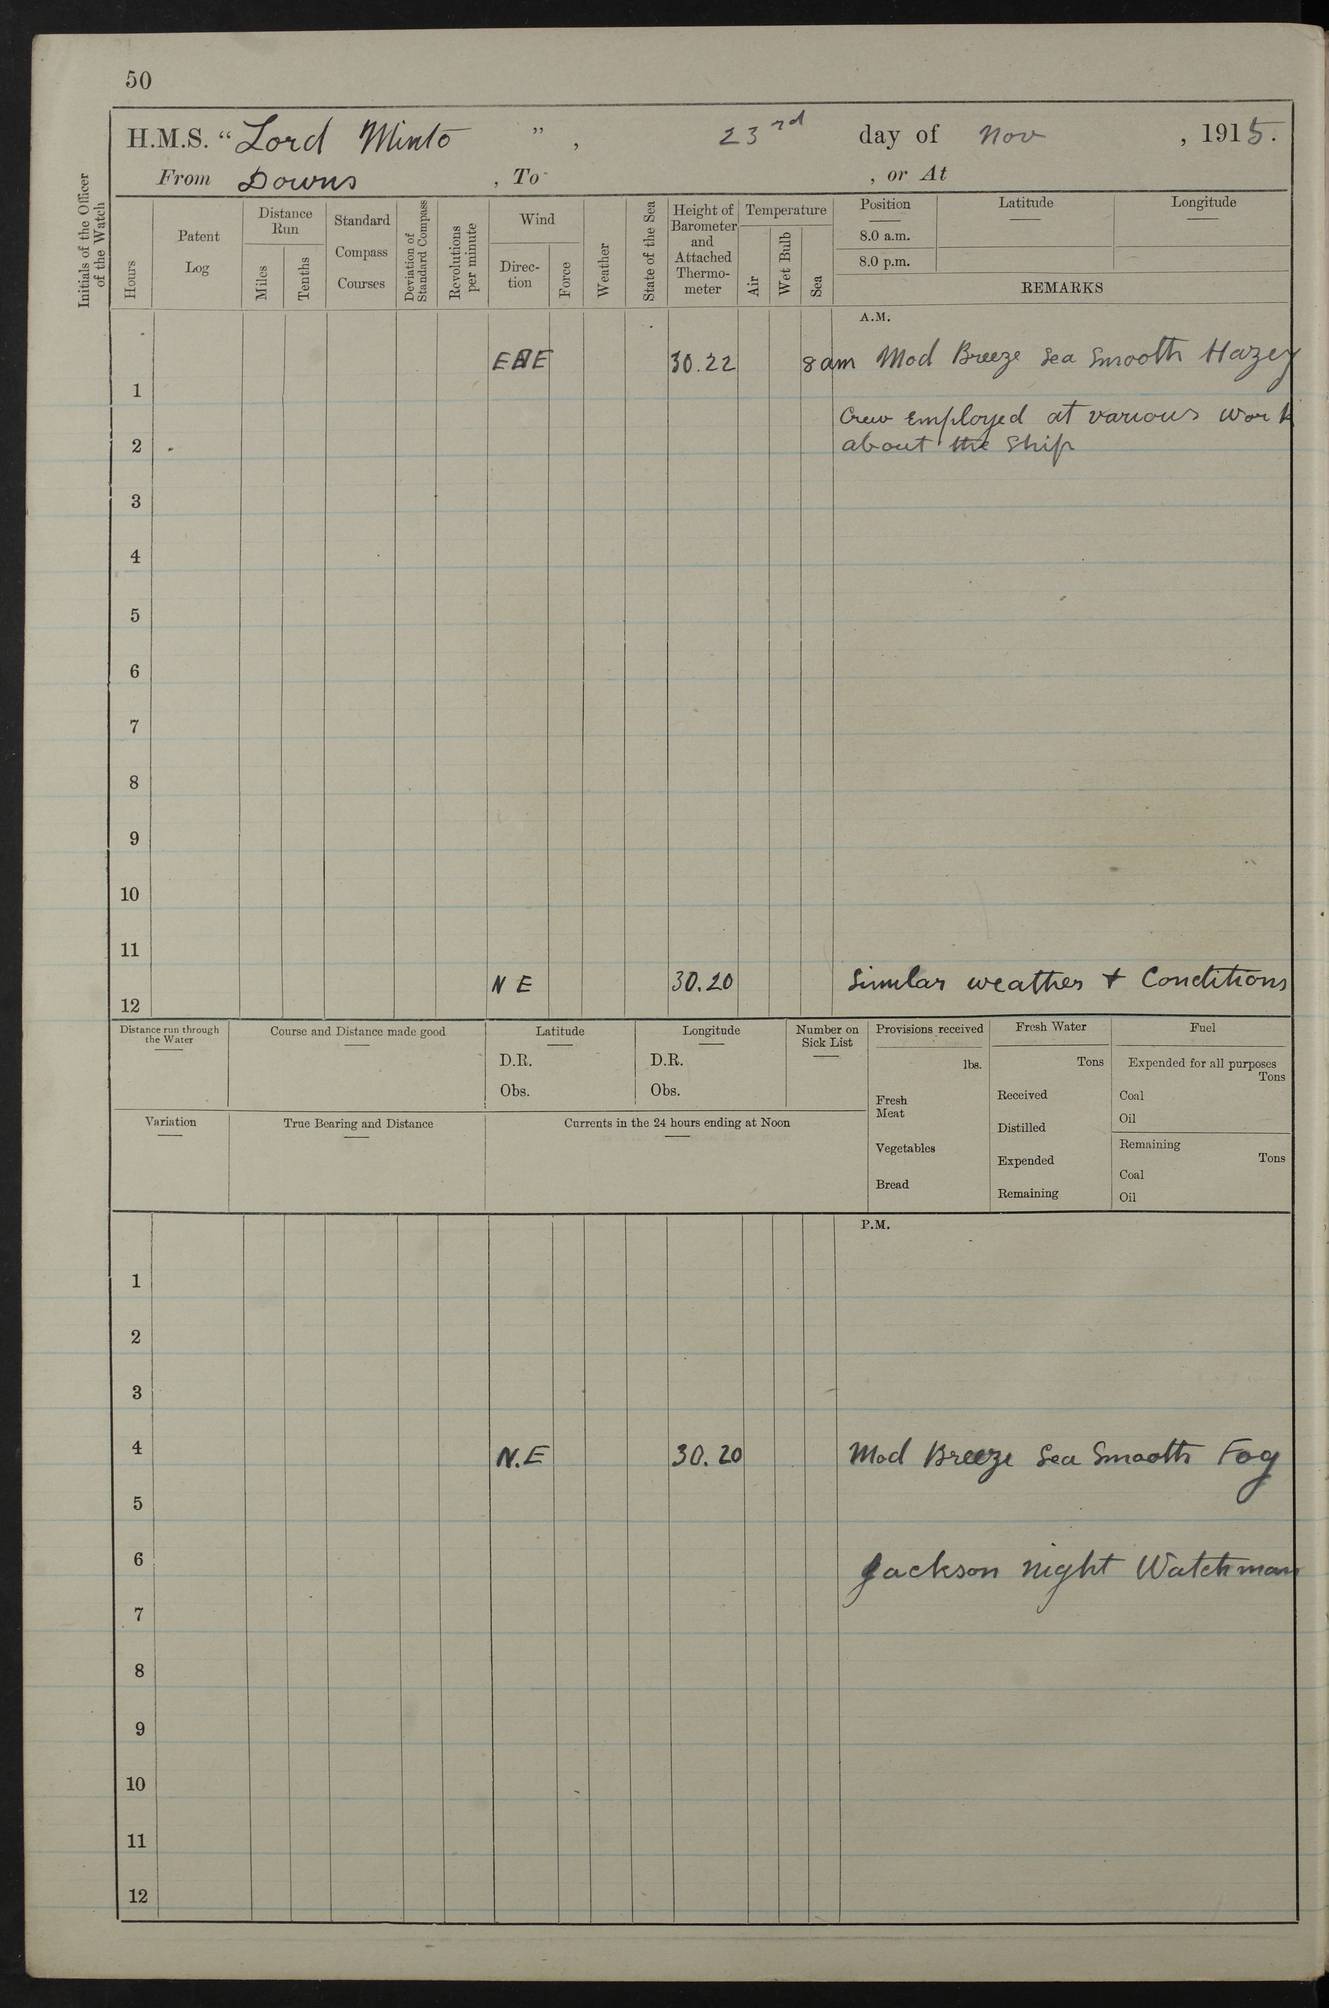 50
H.M.S. “ Lord Minto ”, 23rd day of Nov , 1915.
From Downs , To , or At
Initials of the Officer of the Watch
Hours
Patent Log
Distance Run
Miles
Tenths
Standard Compass Courses
Deviation of Standard Compass
Revolutions per minute
Wind
Direction
Force
Weather
State of the Sea
Height of Barometer and Attached Thermometer
Temperature
Air
Wet Bulb
Sea
Position Latitude Longitude
8.0 a.m.
8.0 p.m.
REMARKS
A.M.
30.22 8am Mod Breeze Sea Smooth Hazey
1
Crew employed at various work
2 about the Ship
3
4
5
6
7
8
9
10
11
N E 30.20 Similar weather + Conditions
12
Distance run through the Water
Course and Distance made good
Latitude
D.R.
Obs.
Longitude
D.R.
Obs.
Number on Sick List
Provisions received
lbs.
Fresh Meat
Vegetables
Bread
Fresh Water
Tons
Received
Distilled
Expended
Remaining
Fuel
Expended for all purposes
Tons
Coal
Oil
Remaining
Tons
Coal
Oil
Variation
True Bearing and Distance
Currents in the 24 hours ending at Noon
P.M.
1
2
3
4 N.E 30.20 Mod Breeze Sea Smooth Fog
5
6 Jackson night Watchman
7
8
9
10
11
12